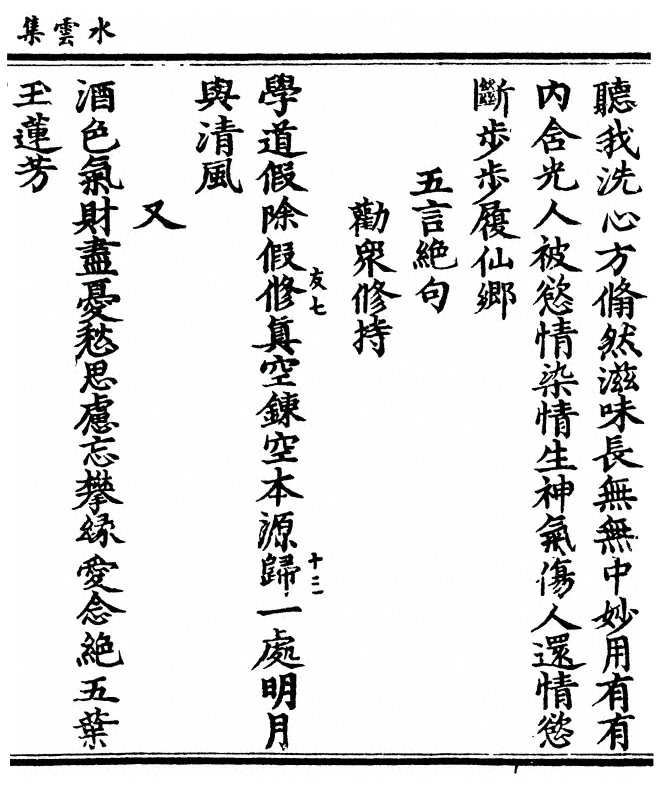 水雲集
聽我洗心方翛然滋味長無無中妙用有有
內含光人被慾情染情生神氣傷人還情慾
斷步步履仙鄉
五言絕句
勸眾修持
學道假除假修真空鍊空本源歸一處明月
友七
十二
與清風
又
酒色氣財盡憂愁思慮忘攀緣愛念絕五葉
玉蓮芳